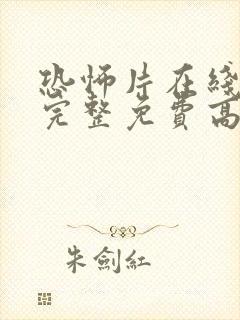 恐怖片在綫
完整免費高
朱劍紅